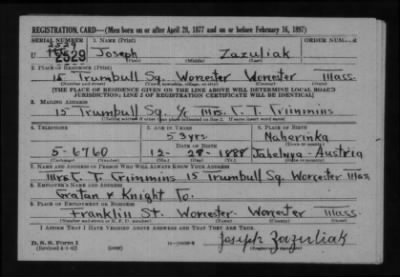 REGISTRATION CARD—(Men born on or after April 28, 1877 and on or before February 16, 1897)
SERIAL NUMBER 1. NAME (Print) ORDER NUMBER
U 2529 Joseph Zazuliak
(First) (Middle) (Last)
2. PLACE OF RESIDENCE (Print)
15 Trumbull Sq. Worcester Worcester Mass.
[THE PLACE OF RESIDENCE GIVEN ON THE LINE ABOVE WILL DETERMINE LOCAL BOARD
JURISDICTION; LINE 2 OF REGISTRATION CERTIFICATE WILL BE IDENTICAL]
3. MAILING ADDRESS
15 Trumbull Sq. c/o Mrs. T. T. Crimmins
4. TELEPHONE 5. AGE IN YEARS 6. PLACE OF BIRTH
53 yrs.
DATE OF BIRTH
5-6760 12-28-1888 Austria
(Exchange) (Number) (Mo.) (Day) (Yr.)
7. NAME AND ADDRESS OF PERSON WHO WILL ALWAYS KNOW YOUR ADDRESS
Mrs. T. T. Crimmins 15 Trumbull Sq. Worcester Mass
8. EMPLOYER'S NAME AND ADDRESS
Graton & Knight Co.
9. PLACE OF EMPLOYMENT OR BUSINESS
Franklin St. Worcester Worcester Mass.
I AFFIRM THAT I HAVE VERIFIED ABOVE ANSWERS AND THAT THEY ARE TRUE.
D. S. S. Form 1
Joseph Zazuliak